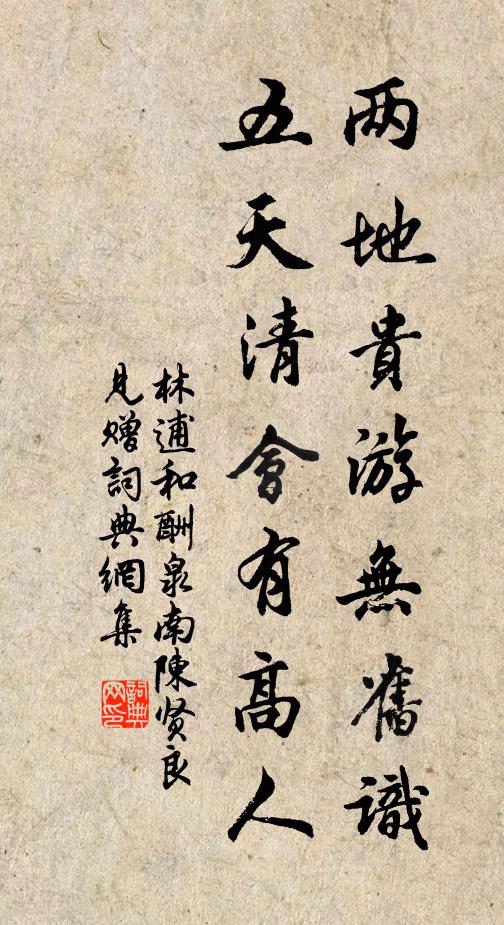 两地貴游無舊識
五天清會有高人
林逋和酬泉南陳贤良
見赠詞典網集
詞典
网印